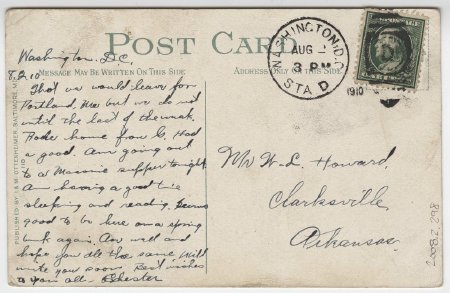 POST CARD
Washington, D.C.
8/2/10
MESSAGE MAY BE WRITTEN ON THIS SIDE
ADDRESS ONLY ON THIS SIDE
WASHINGTON, D.C.
AUG 2
3 PM
1910
STA D
Thot we would leave for
Portland, Me but we do not
until the last of the week.
Rode home from G. Had
a good. Am going out
to a Masonic supper tonight.
Am having a good time
sleeping and reading. Seems
good to be here on a spring
bunk again. Am well and
hope you all the same. Will
write you soon. Best wishes
to you all. Chester
Mr W. L. Howard,
Clarksville,
Arkansas.
PUBLISHED BY I & M OTTENHEIMER, BALTIMORE, MD.